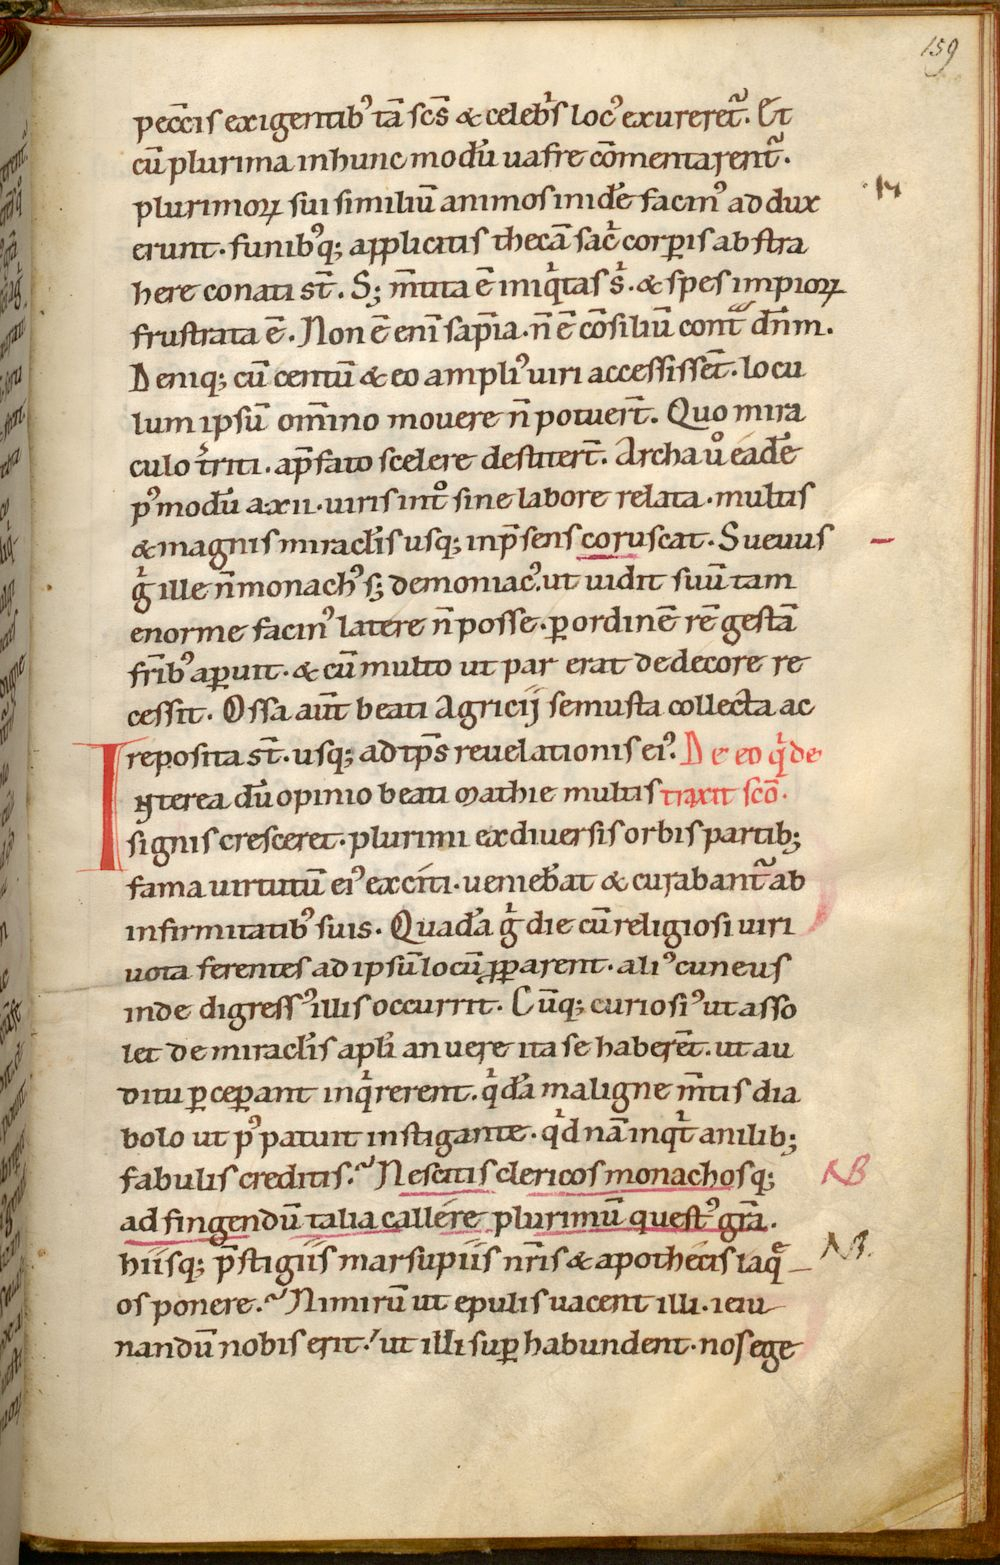 159
peccis exigentibꝰ tā scs̄ & celebrͥs locꝰ exureret᷑. Et
cū plurima inhunc modū uafre cōmentarent᷑.
plurimoꝝ sui similiū animos inidē facinꝰ ad dux
·14
erunt. funibꝰq; applicitis thecā sac̄ corꝑis abstra
here conati st̄. S; m̄tita ē iniqͥtas sͥ. & spes impioꝝ
frustrata ē. Non ē enī sap̄ia. n̄ ē cōsiliū cont᷑ dn̄m.
Deniq; cū centū & eo ampliꝰ uiri accessissēt. locu
lum ipsū om̄ino movere n̄ potuer̄t. Quo mira
culo tͥriti. ap̄fato scelere destiter̄t. Archa uͦ eadē
pꝰmodū a·xii·uiris intͦ sine labore relata. multis
& magnis miracl̄is usq; inp̄sens coruscat. Sueuus
gͥ ille n̄monachꝰ s; demoniacꝰ. ut uidit suū tam
enorme facinꝰ latere n̄ posse. ꝑ ordinē rē gestā
fr̄ibꝰ aꝑuit. & cū multo ut par erat dedecore re
cessit. Ossa aūt beati Agricij semusta collecta ac
reposita st̄. usq; ad tp̄s reuelationis eiꝰ. De eo qͥ de
Iŋterea dū opinio beati Mathie multis traxit scō.
signis cresceret. plurimi ex diuersis orbis partib;
fama uirtutū eiꝰ exciti. ueniebāt & curabant᷑ ab
infirmitatibꝰ suis. Quadā gͥ die cū religiosi uiri
uota ferentes ad ipsū locū ꝓꝑarent. aliꝰ cuneus
inde digressꝰ illis occurrit. Cūq; curiosiꝰ ut asso
let de miracl̄is apl̄i an uere ita se haberēt. ut au
ditu ꝑceꝑant inqͥrerent. qͥdā maligne m̄tis dia
bolo ut pꝰ patuit instigante. qͥd nā inqͥt anilib;
fabulis creditis? Nescitis clericos monachosq;
NB
ad fingendū talia callere plurimū questꝰ gr̄a.
hiisq; p̄stigiis marsupiis nr̄is & apothecis laq̄
NB.
os ponere? Nimirū ut epulis uacent illi. ieiu
nandū nobis erit! ut illi suꝑ habundent. nos ege